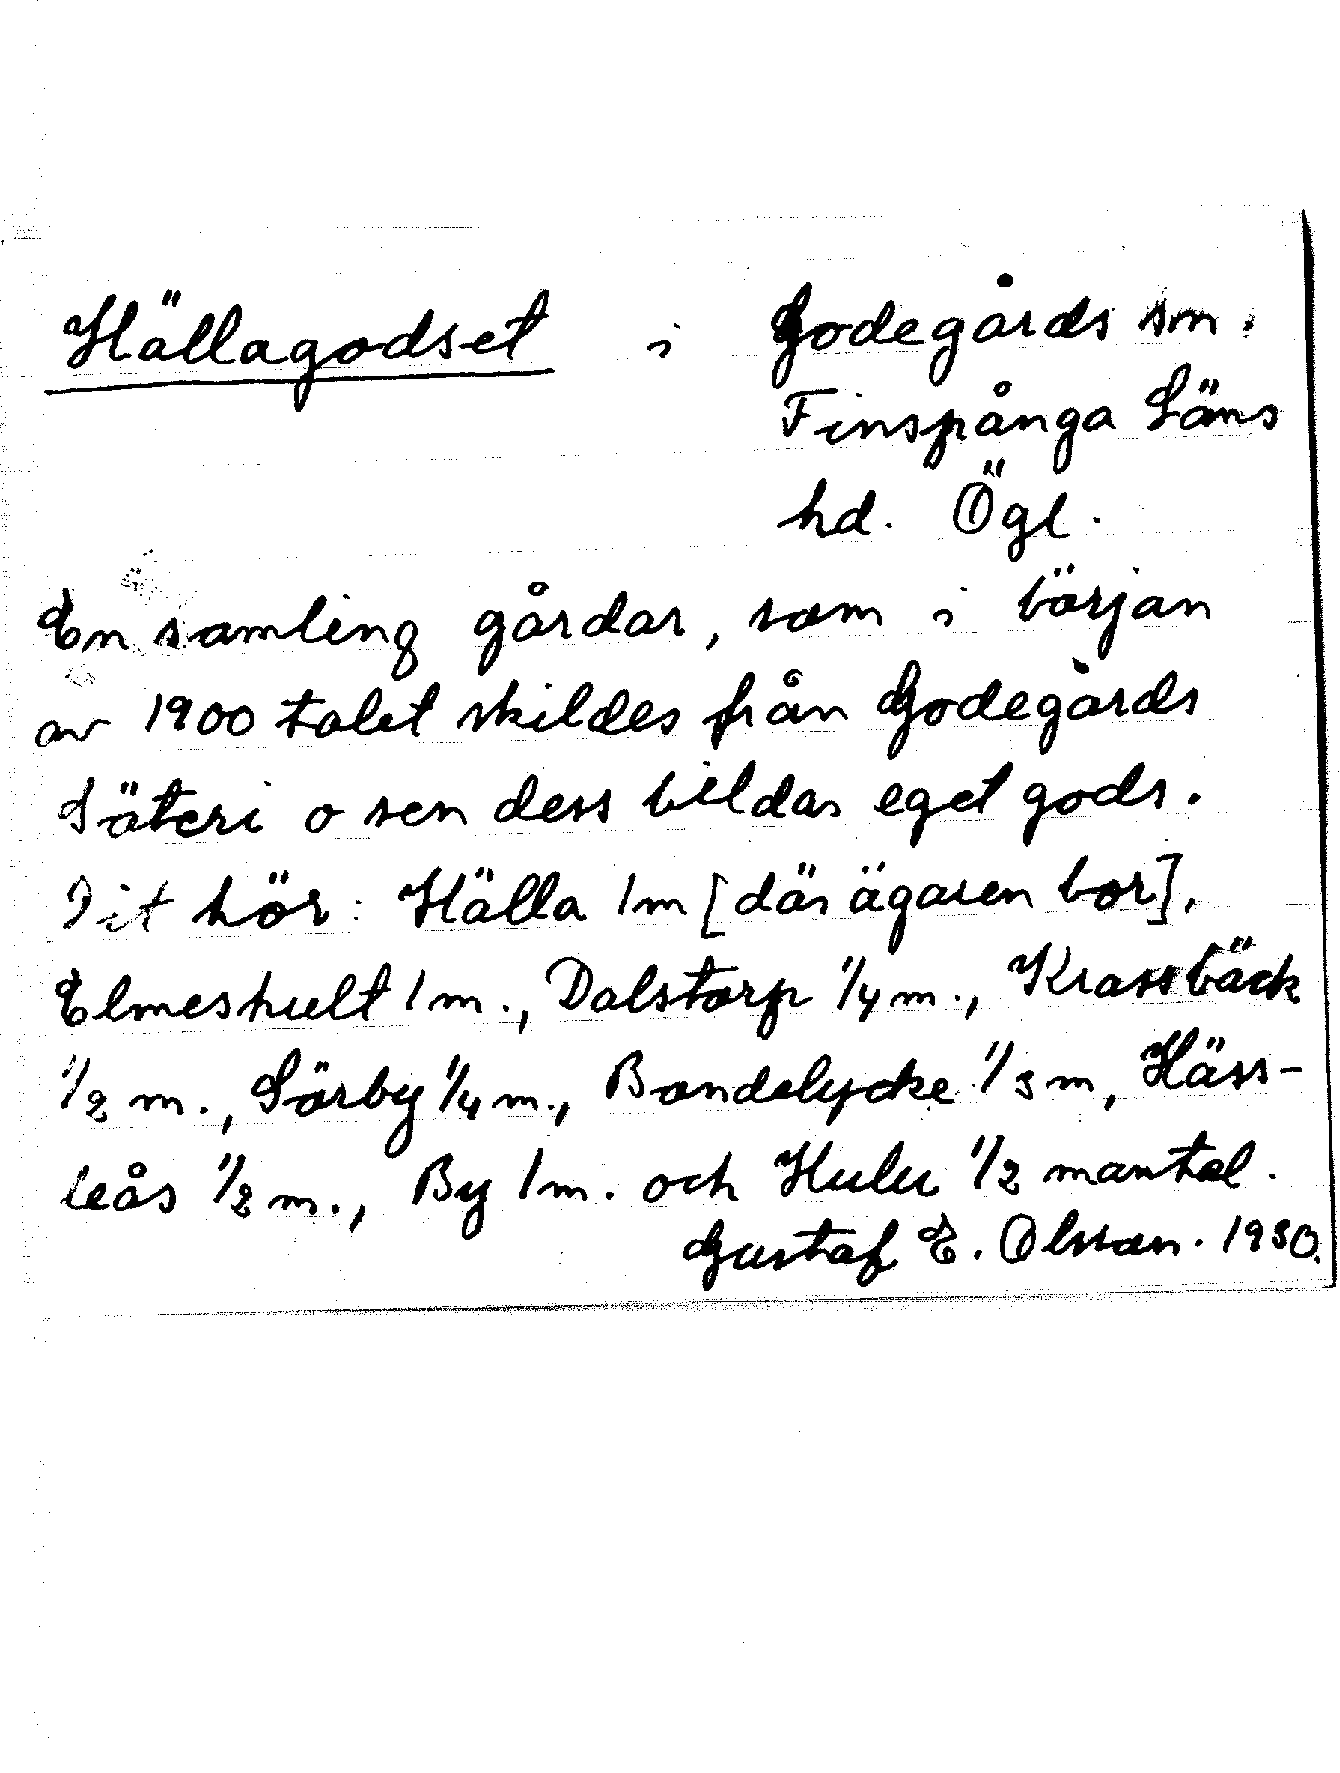 Hällagodset i Godegårds sn.
Finspånga Läns
hd. Ögl.
En samling gårdar, som i början
av 1900 talet skildes från Godegårds
Säteri o sen dess bildar eget gods.
Dit hör: Hälla 1 m [där ägaren bor],
Elmeshult 1 m., Dalstorp 1/4 m., Krassbäck
1/2 m., Sörby 1/4 m., Bondelycke 1/3 m, Häss-
leås 1/2 m., By 1 m. och Hulu 1/2 mantal.
Gustaf E. Olsson. 1930.